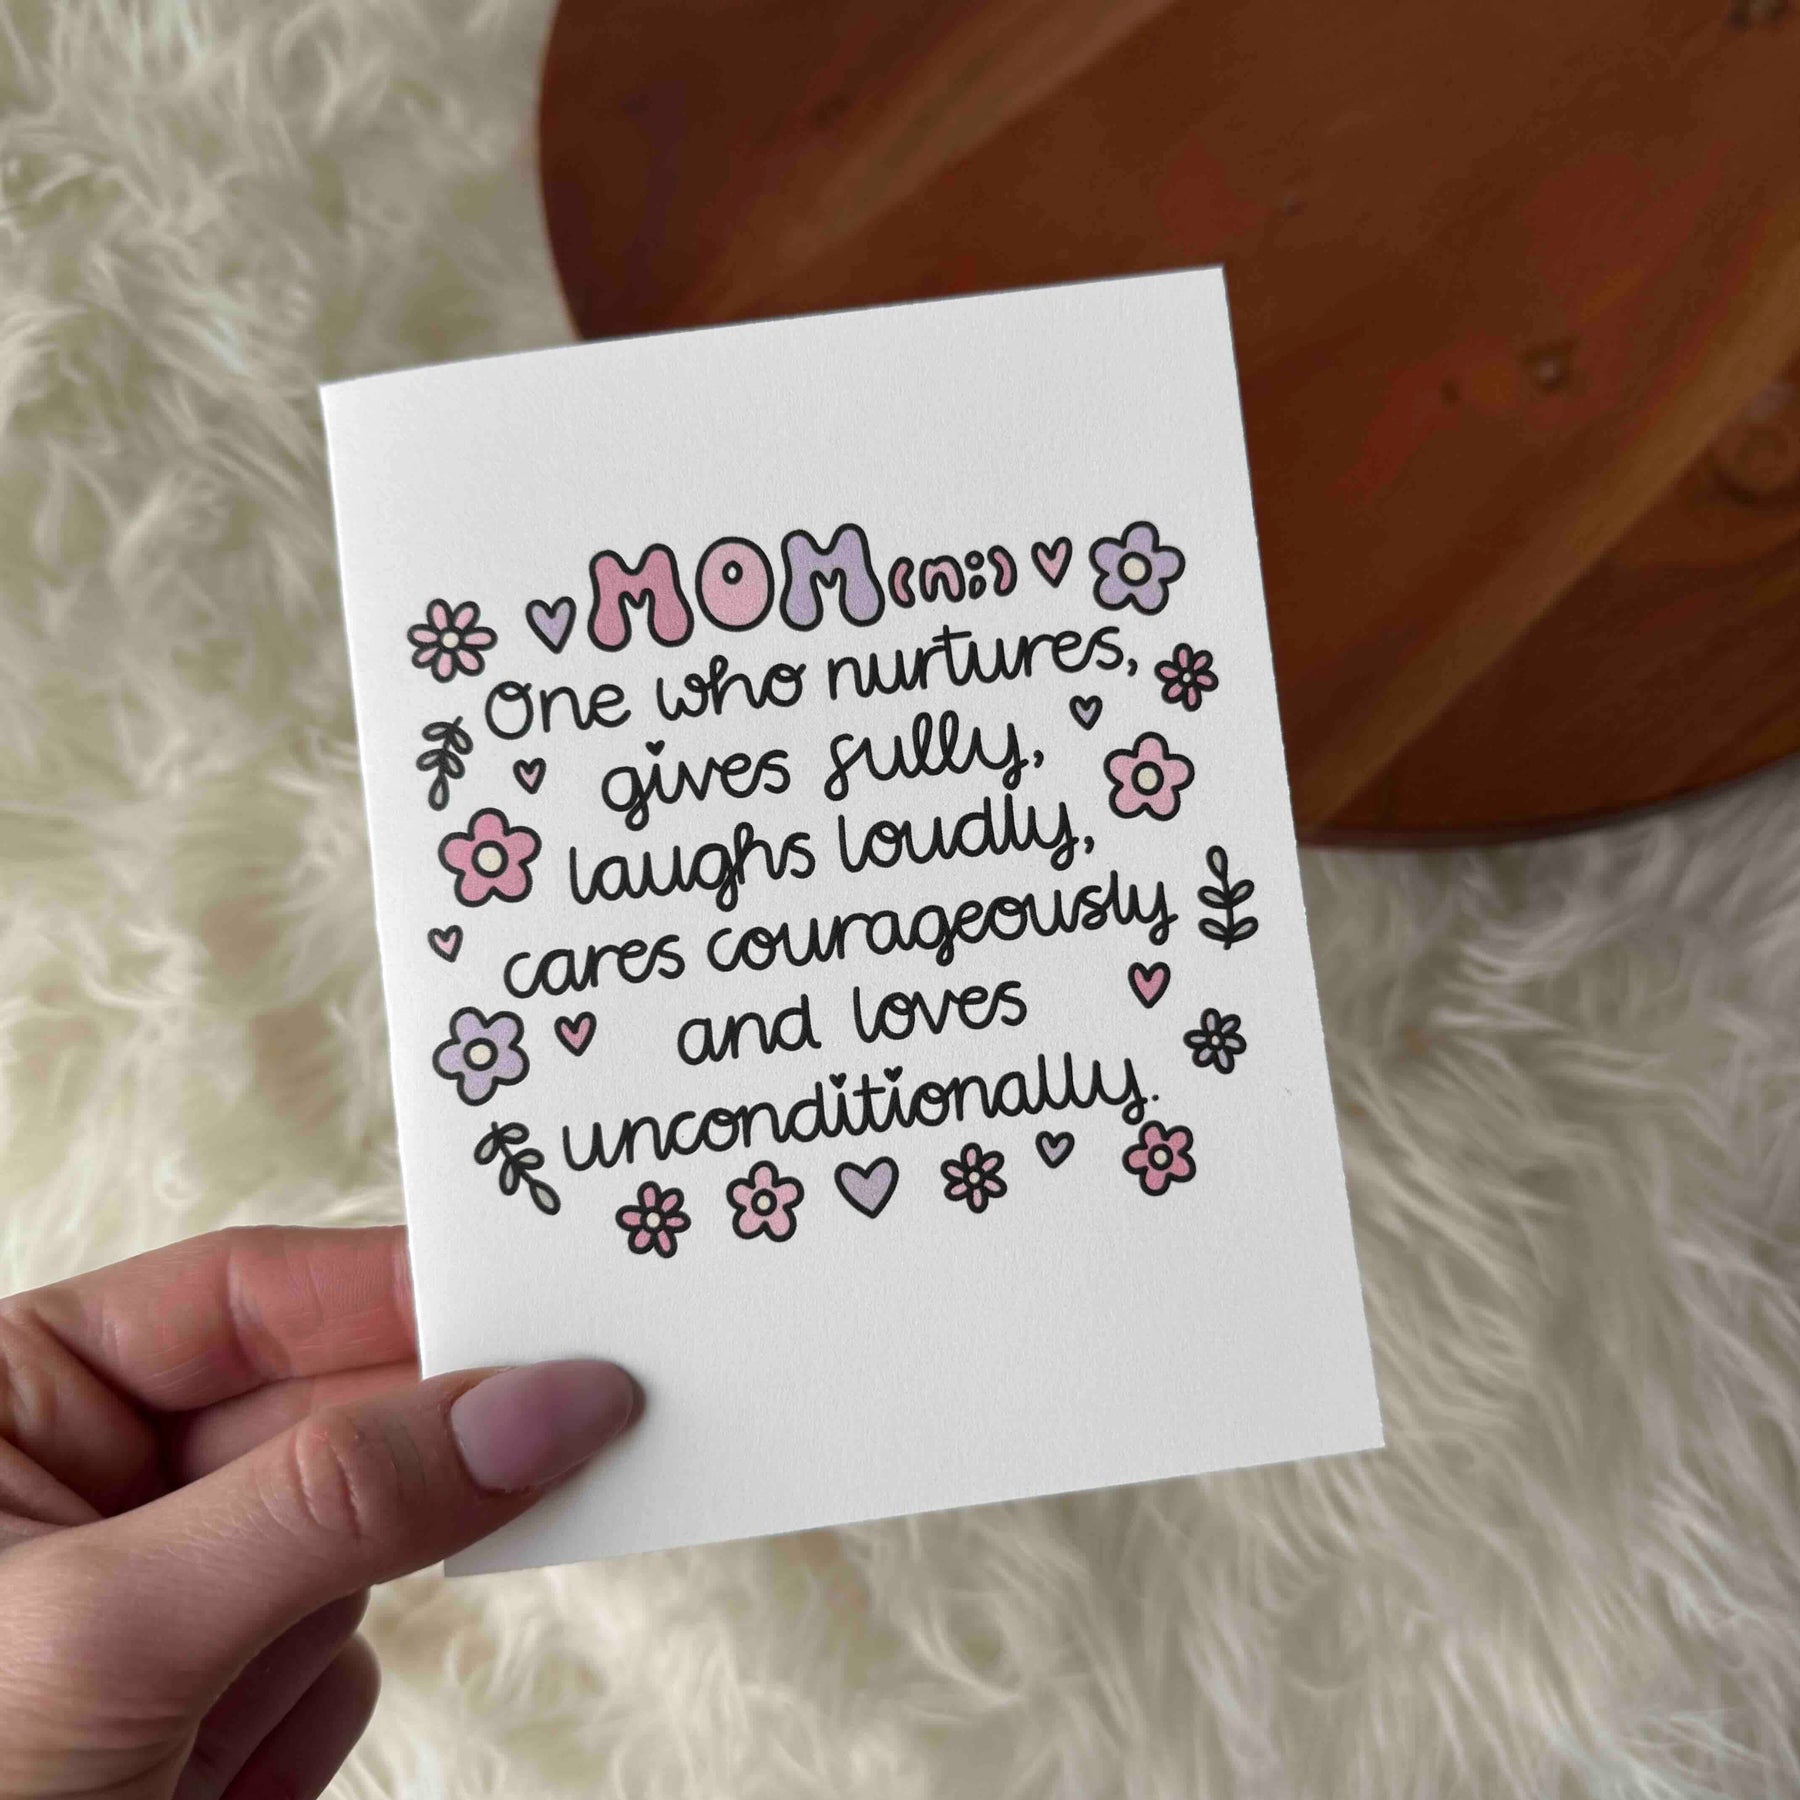 MOM (n:)
One who nurtures,
gives fully,
laughs loudly,
cares courageously
and loves
unconditionally.